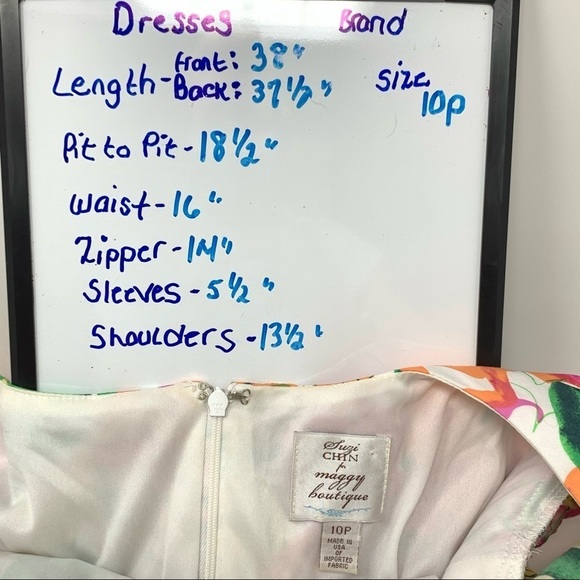 Dresses Brand
Length - Front: 38"
Back: 37 1/2"
Size
10p
Pit to Pit - 18 1/2"
Waist - 16"
Zipper - 14"
Sleeves - 5 1/2"
Shoulders - 13 1/2"
Suzi
CHIN
for
maggy
boutique
10P
MADE IN
USA
OF
IMPORTED
FABRIC